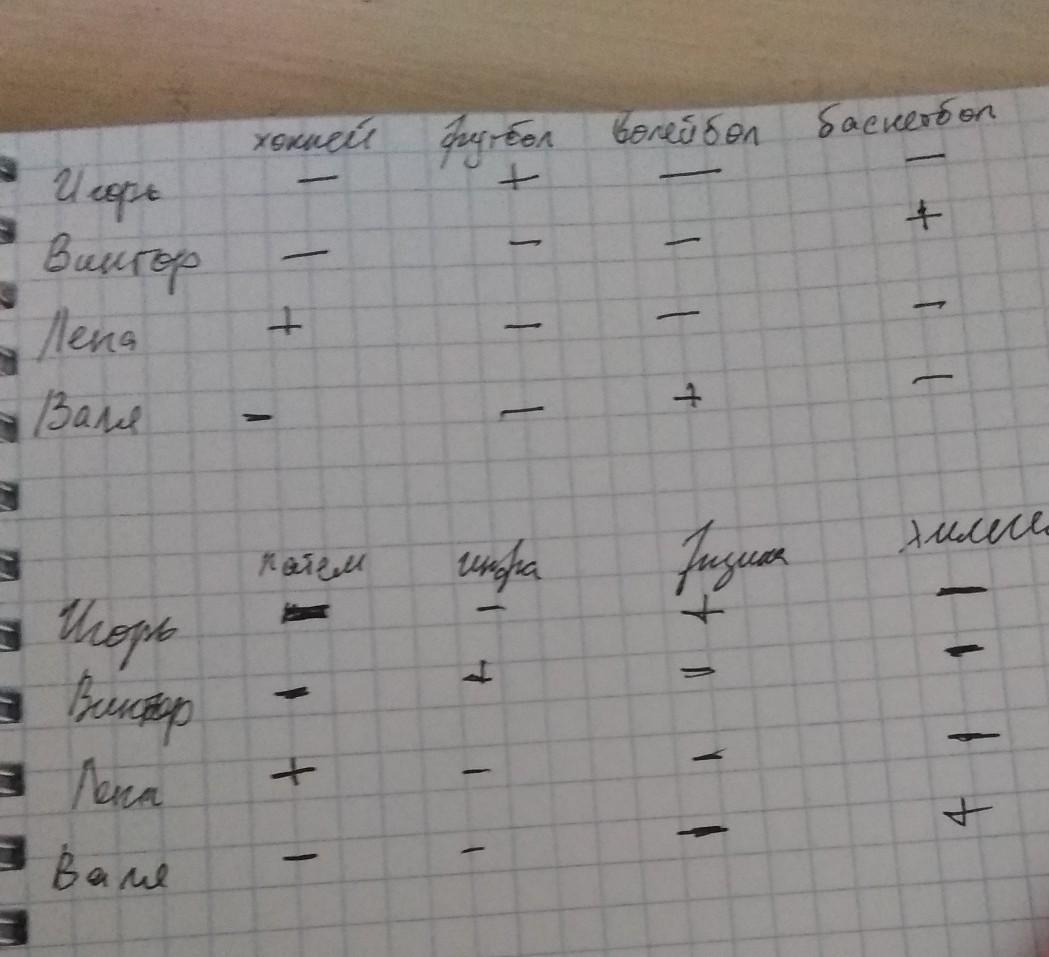 хоккей футбол волейбол баскетбол
Игорь − + − −
Виктор − − − +
Лена + − − −
Валя − − + −
матем инфра физика химия
Игорь − − + −
Виктор − + − −
Лена + − − −
Валя − − − +